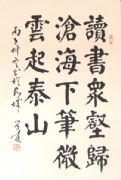 讀書衆壑歸
滄海下筆微
雲起泰山
丙子仲